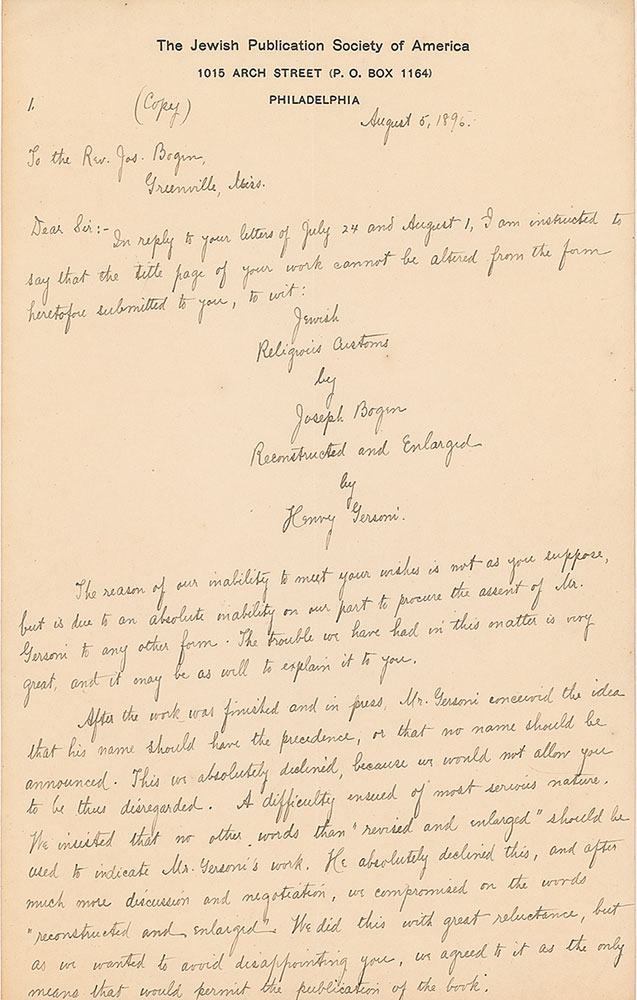 The Jewish Publication Society of America
1015 ARCH STREET (P. O. BOX 1164)
PHILADELPHIA
1. (Copy)
August 5, 1896.
To the Rev. Jos. Bogen,
Greenville, Miss.
Dear Sir:- In reply to your letters of July 24 and August 1, I am instructed to
say that the title page of your work cannot be altered from the form
heretofore submitted to you, to wit:
Jewish
Religious Customs
by
Joseph Bogen
Reconstructed and Enlarged
by
Henry Gersoni.
The reason of our inability to meet your wishes is not as you suppose,
but is due to an absolute inability on our part to procure the assent of Mr.
Gersoni to any other form. The trouble we have had in this matter is very
great, and it may be as will to explain it to you.
After the work was finished and in press, Mr. Gersoni conceived the idea
that his name should have the precedence, or that no name should be
announced. This we absolutely declined, because we would not allow you
to be thus disregarded. A difficulty ensued of most serious nature.
We insisted that no other words than "revised and enlarged" should be
used to indicate Mr. Gersoni's work. He absolutely declined this, and after
much more discussion and negotiation, we compromised on the words
"reconstructed and enlarged". We did this with great reluctance, but
as we wanted to avoid disappointing you, we agreed to it as the only
means that would permit the publication of the book.